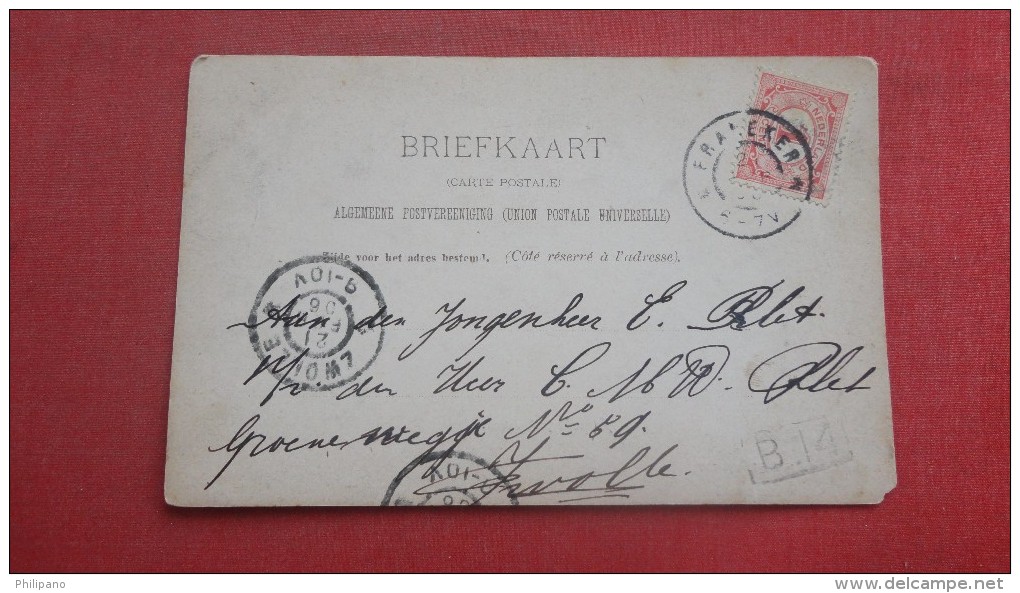 BRIEFKAART
(CARTE POSTALE)
ALGEMEENE POSTVEREENIGING (UNION POSTALE UNIVERSELLE)
Zijde voor het adres bestemd. (Côté réservé à l'adresse).
NEDERLAND
FRANEKER
ZWOLLE
9-10V
Aan den Jongenheer E. Plet
p/a den Heer C. M. W. Plet
Groenewegje Nro 89.
Zwolle.
-10V
B 14
Philipano
www.delcampe.net